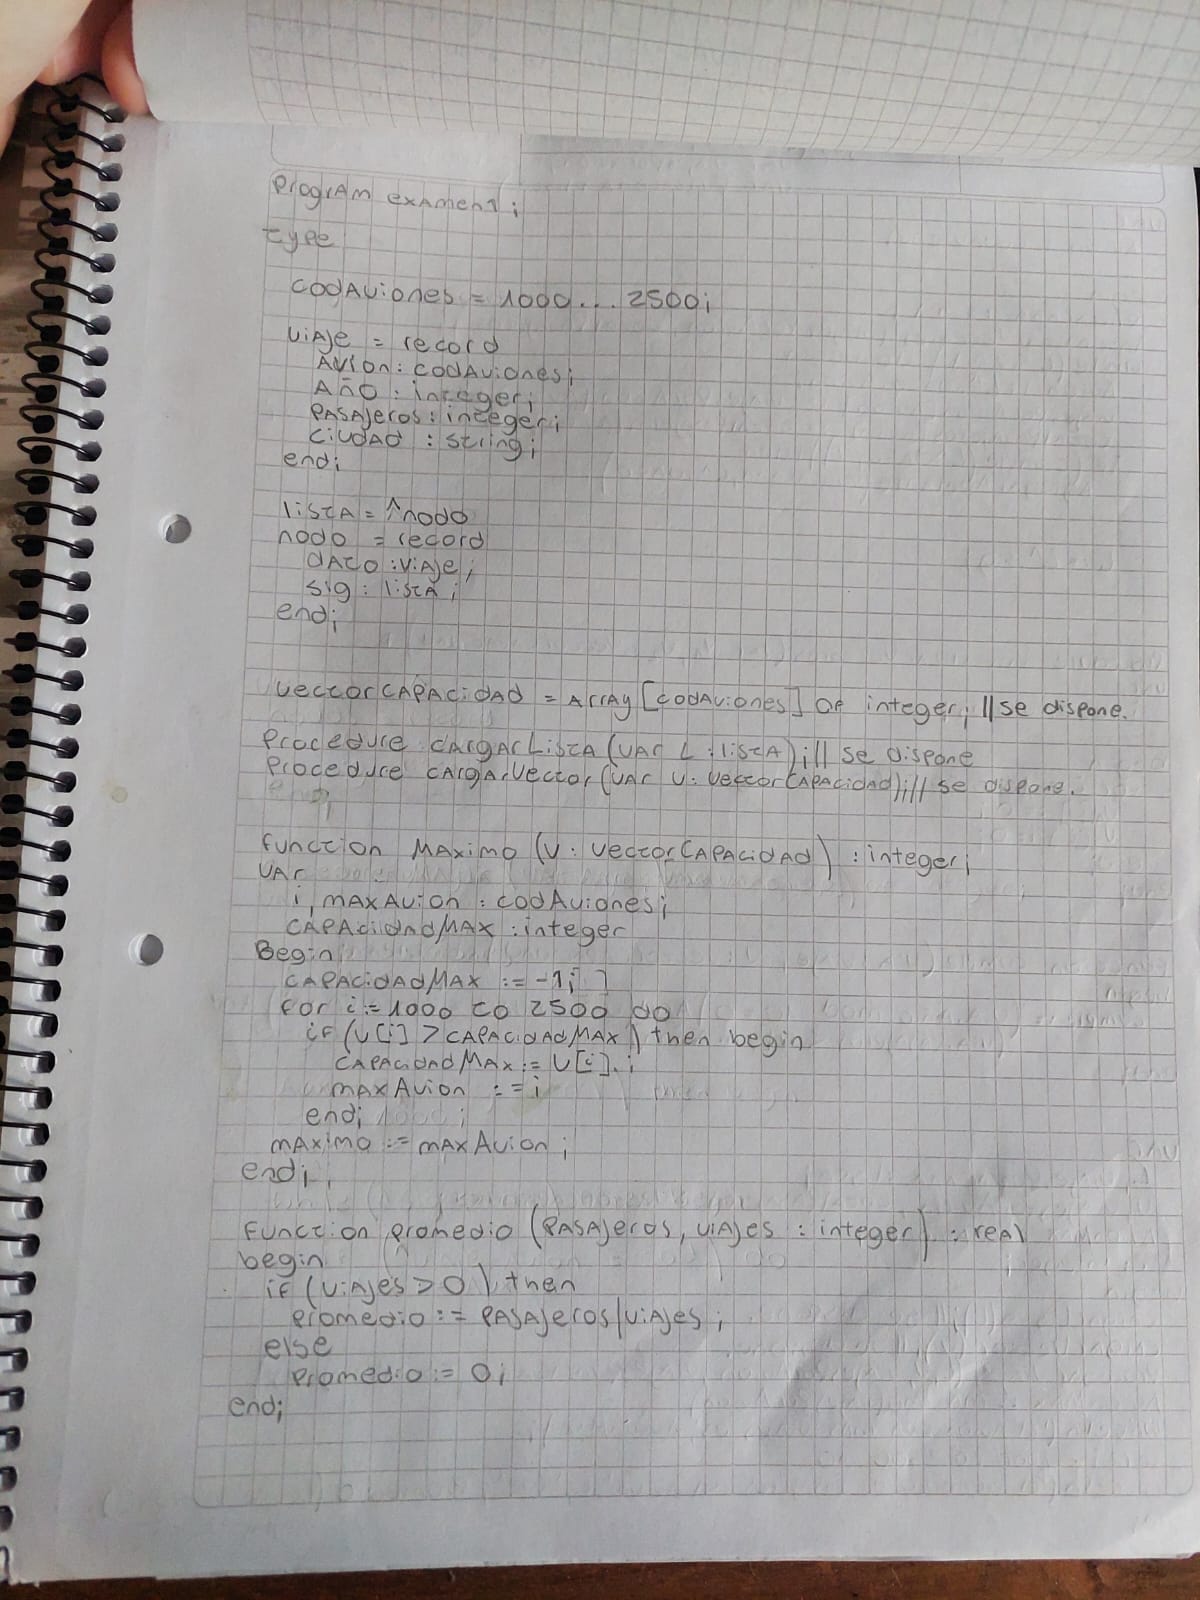 Program examen1;
type
codAviones = 1000...2500;
viaje = record
Avion: codAviones;
Año : integer;
Pasajeros: integer;
ciudad : string;
end;
lista = ^nodo
nodo = record
dato : viaje;
sig : lista;
end;
vectorCapacidad = Array [codAviones] of integer; // se dispone.
Procedure cargarLista (var L : lista); // se dispone
Procedure cargarVector (var v: vectorCapacidad); // se dispone.
function Maximo (v : vectorCapacidad) : integer;
var
i, maxAvion : codAviones;
capacidadMax : integer
Begin
capacidadMax := -1;
for i := 1000 to 2500 do
if (v[i] > capacidadMax) then begin
capacidadMax := v[i];
maxAvion := i
end;
maximo := maxAvion;
end;
function promedio (pasajeros, viajes : integer) : real
begin
if (viajes > 0) then
promedio := pasajeros/viajes;
else
promedio := 0;
end;